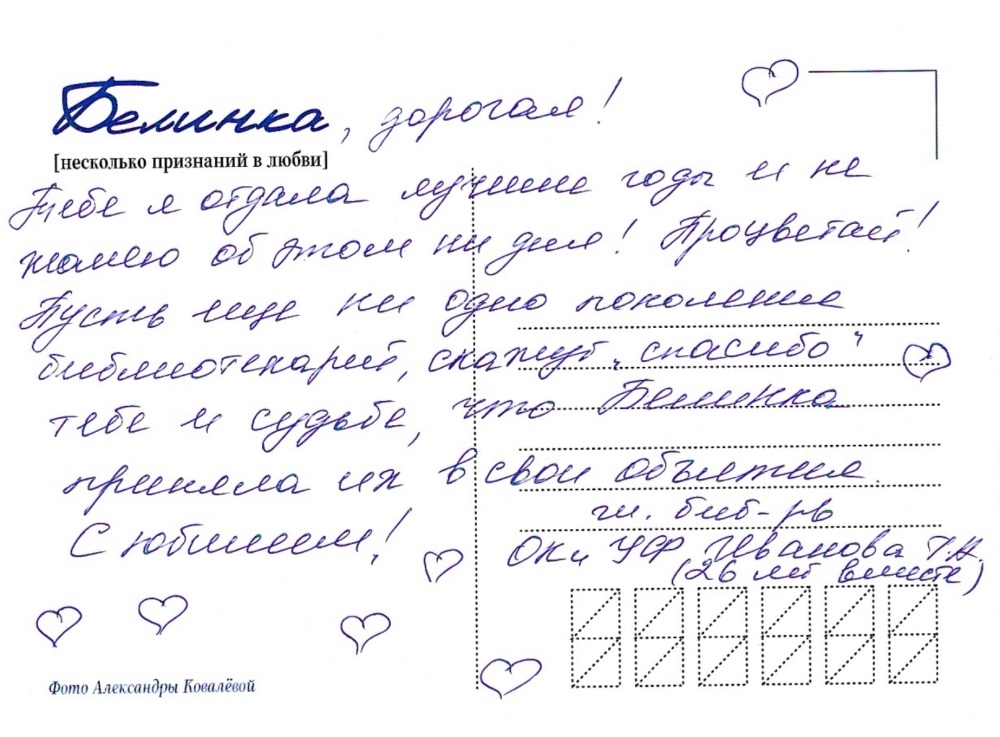 Белинка, дорогая!
[несколько признаний в любви]
Тебе я отдала лучшие годы и не
жалею об этом ни дня! Процветай!
Пусть еще ни одно поколение
библиотекарей, скажут „спасибо“
тебе и судьбе, что Белинка
приняла их в свои объятия.
С юбилеем!
гл. биб-рь
ОКиУФ Иванова Т.Н.
(26 лет вместе)
Фото Александры Ковалёвой